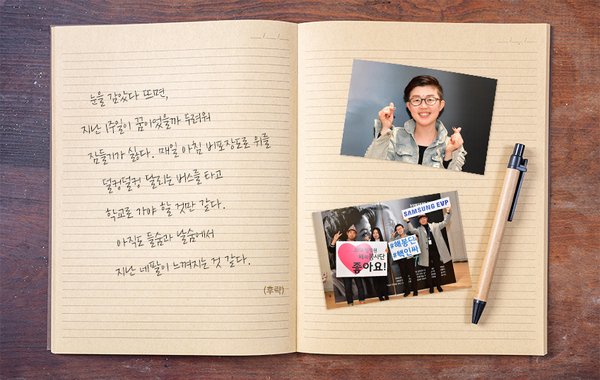 눈을 감았다 뜨면,
지난 1주일이 꿈이었을까 두려워
잠들기가 싫다. 매일 아침 비포장도로 위를
덜컹덜컹 달리는 버스를 타고
학교로 가야 할 것만 같다.
아직도 들숨과 날숨에서
지난 네팔이 느껴지는 것 같다.
(후략)
SAMSUNG EVP
#해봉단
#핵인싸
좋아요!